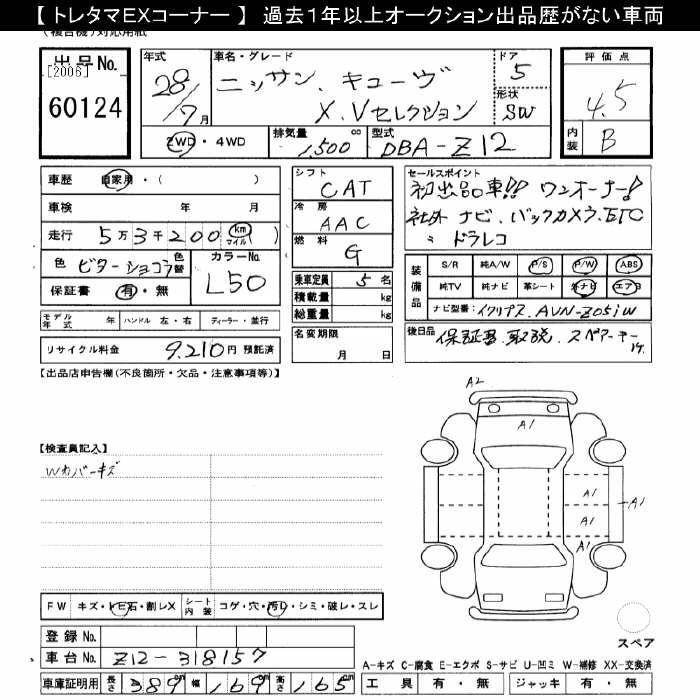 【 トレタマEXコーナー 】 過去1年以上オークション出品歴がない車両
(複合機)対応用紙
出品No. [2006] 60124
年式 28/7月
車名・グレード ニッサン、キューヴ X.Vセレクション
ドア 5
形状 SW
評価点 4.5
内装 B
2WD ・ 4WD
排気量 1,500 cc
型式 DBA-Z12
車歴 自家用・( )
車検 年 月
走行 5万3千200 (km マイル)
色 ビターショコラ 色替 カラーNo. L50
保証書 有・無
モデル年式 年 ハンドル 左・右 ディーラー・並行
リサイクル料金 9,210円 預託済
シフト CAT
冷房 AAC
燃料 G
乗車定員 5名
積載量 kg
総重量 kg
名変期限 月 日
セールスポイント
初出品車!! ワンオーナー!
社外 ナビ、バックカメラ、ETC
〃 ドラレコ
装備品 S/R 純A/W P/S P/W ABS
純TV 純ナビ 革シート 社外ナビ エアB
ナビ型番: イクリプス、AVN-Z05iW
後日品 保証書、取説、スペアーキー
【出品店申告欄(不良箇所・欠品・注意事項等)】
【検査員記入】
Wカバーキズ
A2
A1
A1
A1
A1
A1
スペア
FW キズ・トビ石・割レX シート内装 コゲ・穴・汚レ・シミ・破レ・スレ
登録No.
車台No. Z12-318157
A-キズ C-腐食 E-エクボ S-サビ U-凹ミ W-補修 XX-交換済
車庫証明用 長さ 389cm 幅 169cm 高さ 165cm
工具 有・無 ジャッキ 有・無